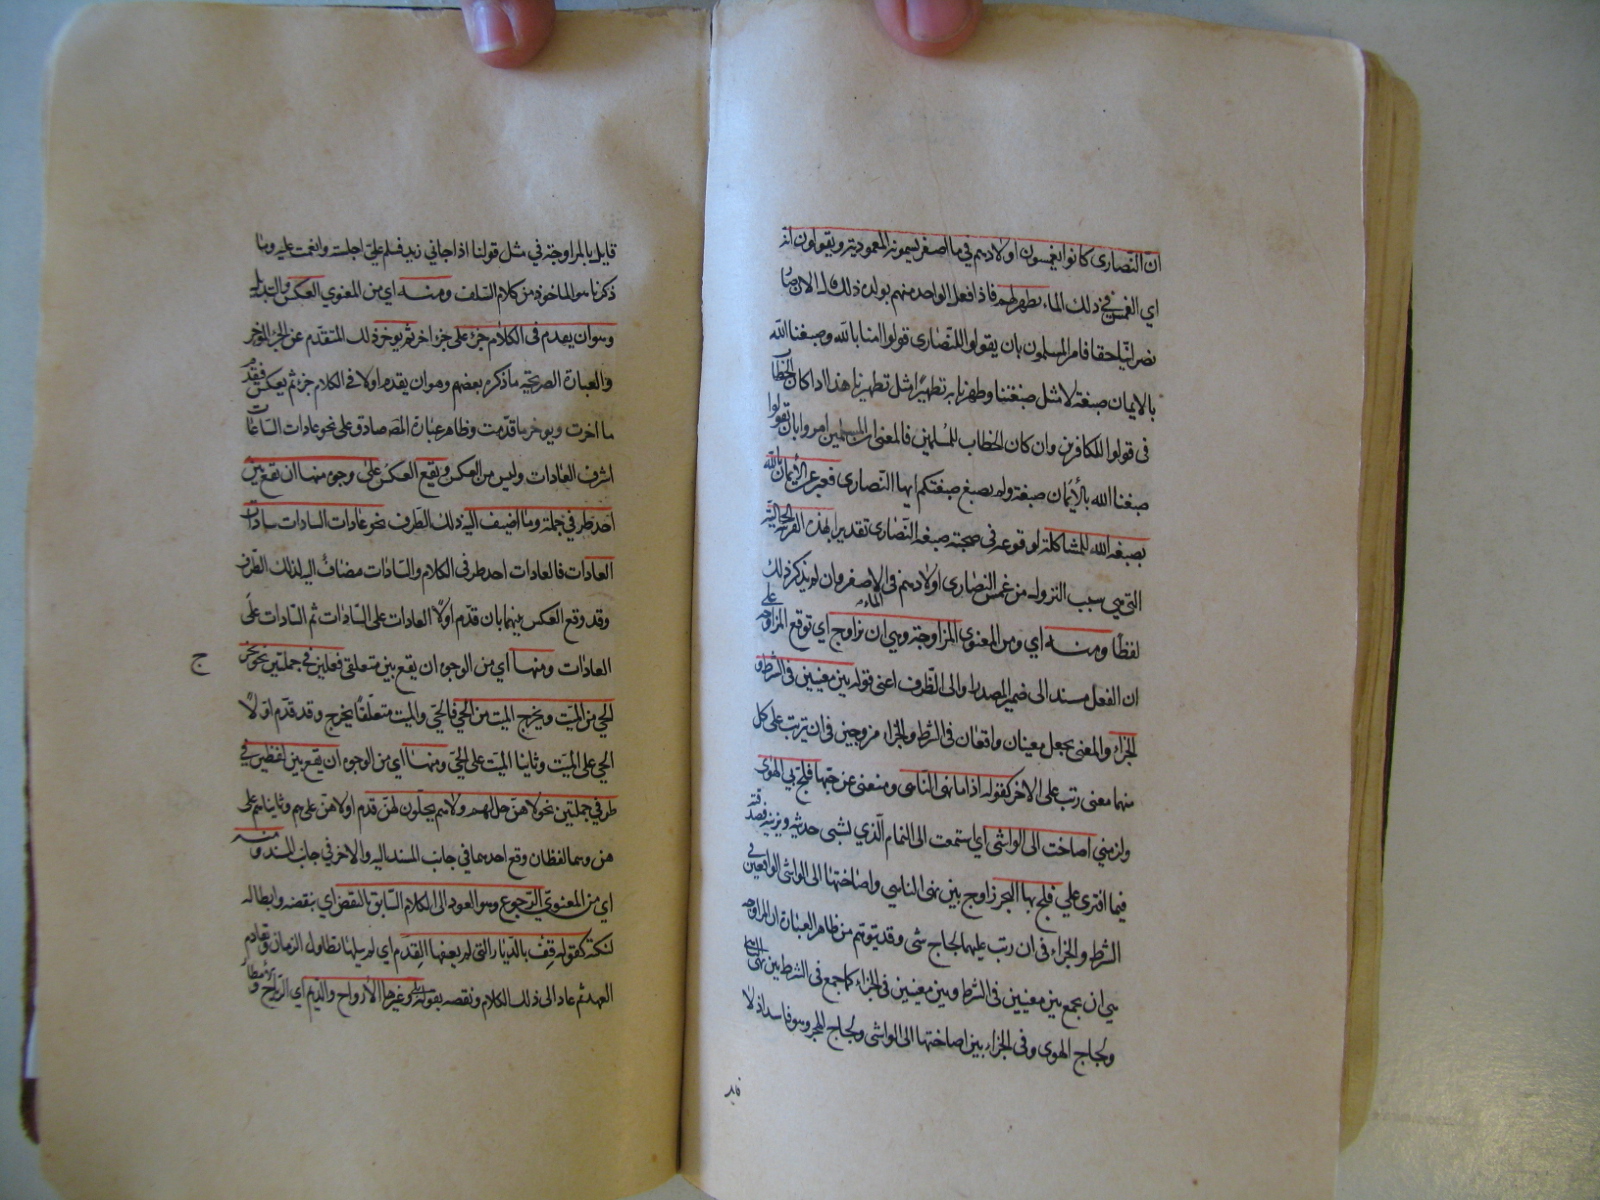 ان النصارى كانوا يغمسون اولادهم في ما اصفر يسمونه المعمودية ويقولون انه
اي الغمس في ذلك الماء تطهير لهم فاذا فعل الواحد منهم بولده ذلك قال الان صار
نصرانيا حقا فامر المسلمون بان يقولوا للنصارى قولوا امنا بالله وصبغنا الله
بالايمان صبغة لا مثل صبغتنا وطهرنا به تطهيرا مثل تطهيرنا هذا اذا كان الخطاب
في قولوا للكافرين وان كان الخطاب للمسلمين فالمعنى ان المسلمين امروا بان يقولوا
صبغنا الله بالايمان صبغة ولم يصبغ صبغتكم ايها النصارى فعبر عن الايمان بالله
بصبغة الله للمشاكلة لوقوعه في صحبة صبغة النصارى تقديرا بهذه القرينة الحالية
التي هي سبب النزول من غمس النصارى اولادهم في الماء الاصفر وان لم يذكر ذلك
لفظا ومنه اي ومن المعنوي المزاوجة وهي ان يزاوج اي توقع المزاوجة على
ان الفعل مسند الى ضمير المصدر او الى الظرف اعني قوله بين معنيين في الشرط و
الجزاء والمعنى يجعل معنيان واقعان في الشرط والجزاء مزوجين في ان يرتب على كل
منهما معنى رتب على الاخر كقوله اذا ما نهى الناهي ومنعني عن حبها فلج بي الهوى
ولزمني اصاخت الى الواشي اي استمعت الى النمام الذي يشي حديثه ويزينه فصدقته
فيما افترى علي فلج بها الهجر زاوج بين نهى الناهي واصاختها الى الواشي الواقعين في
الشرط والجزاء في ان رتب عليهما لجاج شي وقد يتوهم من ظاهر العبارة ان المزاوجة
هي ان يجمع بين معنيين في الشرط وبين معنيين في الجزاء كما جمع في الشرط بين نهي الناهي
ولجاج الهوى وفي الجزاء بين اصاختها الى الواشي ولجاج الهجر وهو فاسد اذ لا
قايل
قايل بالمزاوجة في مثل قولنا اذا جاني زيد فسلم علي اجلسته وانعمت عليه وما
ذكرنا هو الماخوذ من كلام السلف ومنه اي من المعنوي العكس والتبديل
وهو ان يقدم في الكلام جزء على جزء اخر ثم يوخر ذلك المتقدم عن الجزء الموخر
والعبارة الصريحة ما ذكره بعضهم وهو ان يقدم اولا في الكلام جزء ثم يعكس فيقدم
ما اخرت ويوخر ما قدمت وظاهر عبارة المصه صادق على نحو عادات السادات
اشرف العادات وليس من العكس ويقع العكس على وجوه منها ان يقع بين
احد طرفي جملة وما اضيف اليه ذلك الطرف نحو عادات السادات سادات
العادات فالعادات احد طرفي الكلام والسادات مضاف اليه لذلك الطرف
وقد وقع العكس بينهما بان قدم اولا العادات على السادات ثم السادات على
العادات ومنها اي من الوجوه ان يقع بين متعلقي فعلين في جملتين نحو يخرج
ج
الحي من الميت ويخرج الميت من الحي فالحي والميت متعلقا يخرج وقد قدم اولا
الحي على الميت وثانيا الميت على الحي ومنها اي من الوجوه ان يقع بين لفظين في
طرفي جملتين نحو لا هن حل لهم ولا هم يحلون لهن قدم اولا هن على هم وثانيا هم على
هن وهما لفظان وقع احدهما في جانب المسند اليه والاخر في جانب المسند ومنه
اي من المعنوي الرجوع وهو العود الى الكلام السابق بالنقض اي بنقضه وابطاله
لنكتة كقوله قف بالديار التي لم يعفها القدم اي لم يبلها تطاول الزمان وتقادم
العهد ثم عاد الى ذلك الكلام ونقضه بقوله بلى وغيرها الارواح والديم اي الرياح والامطار